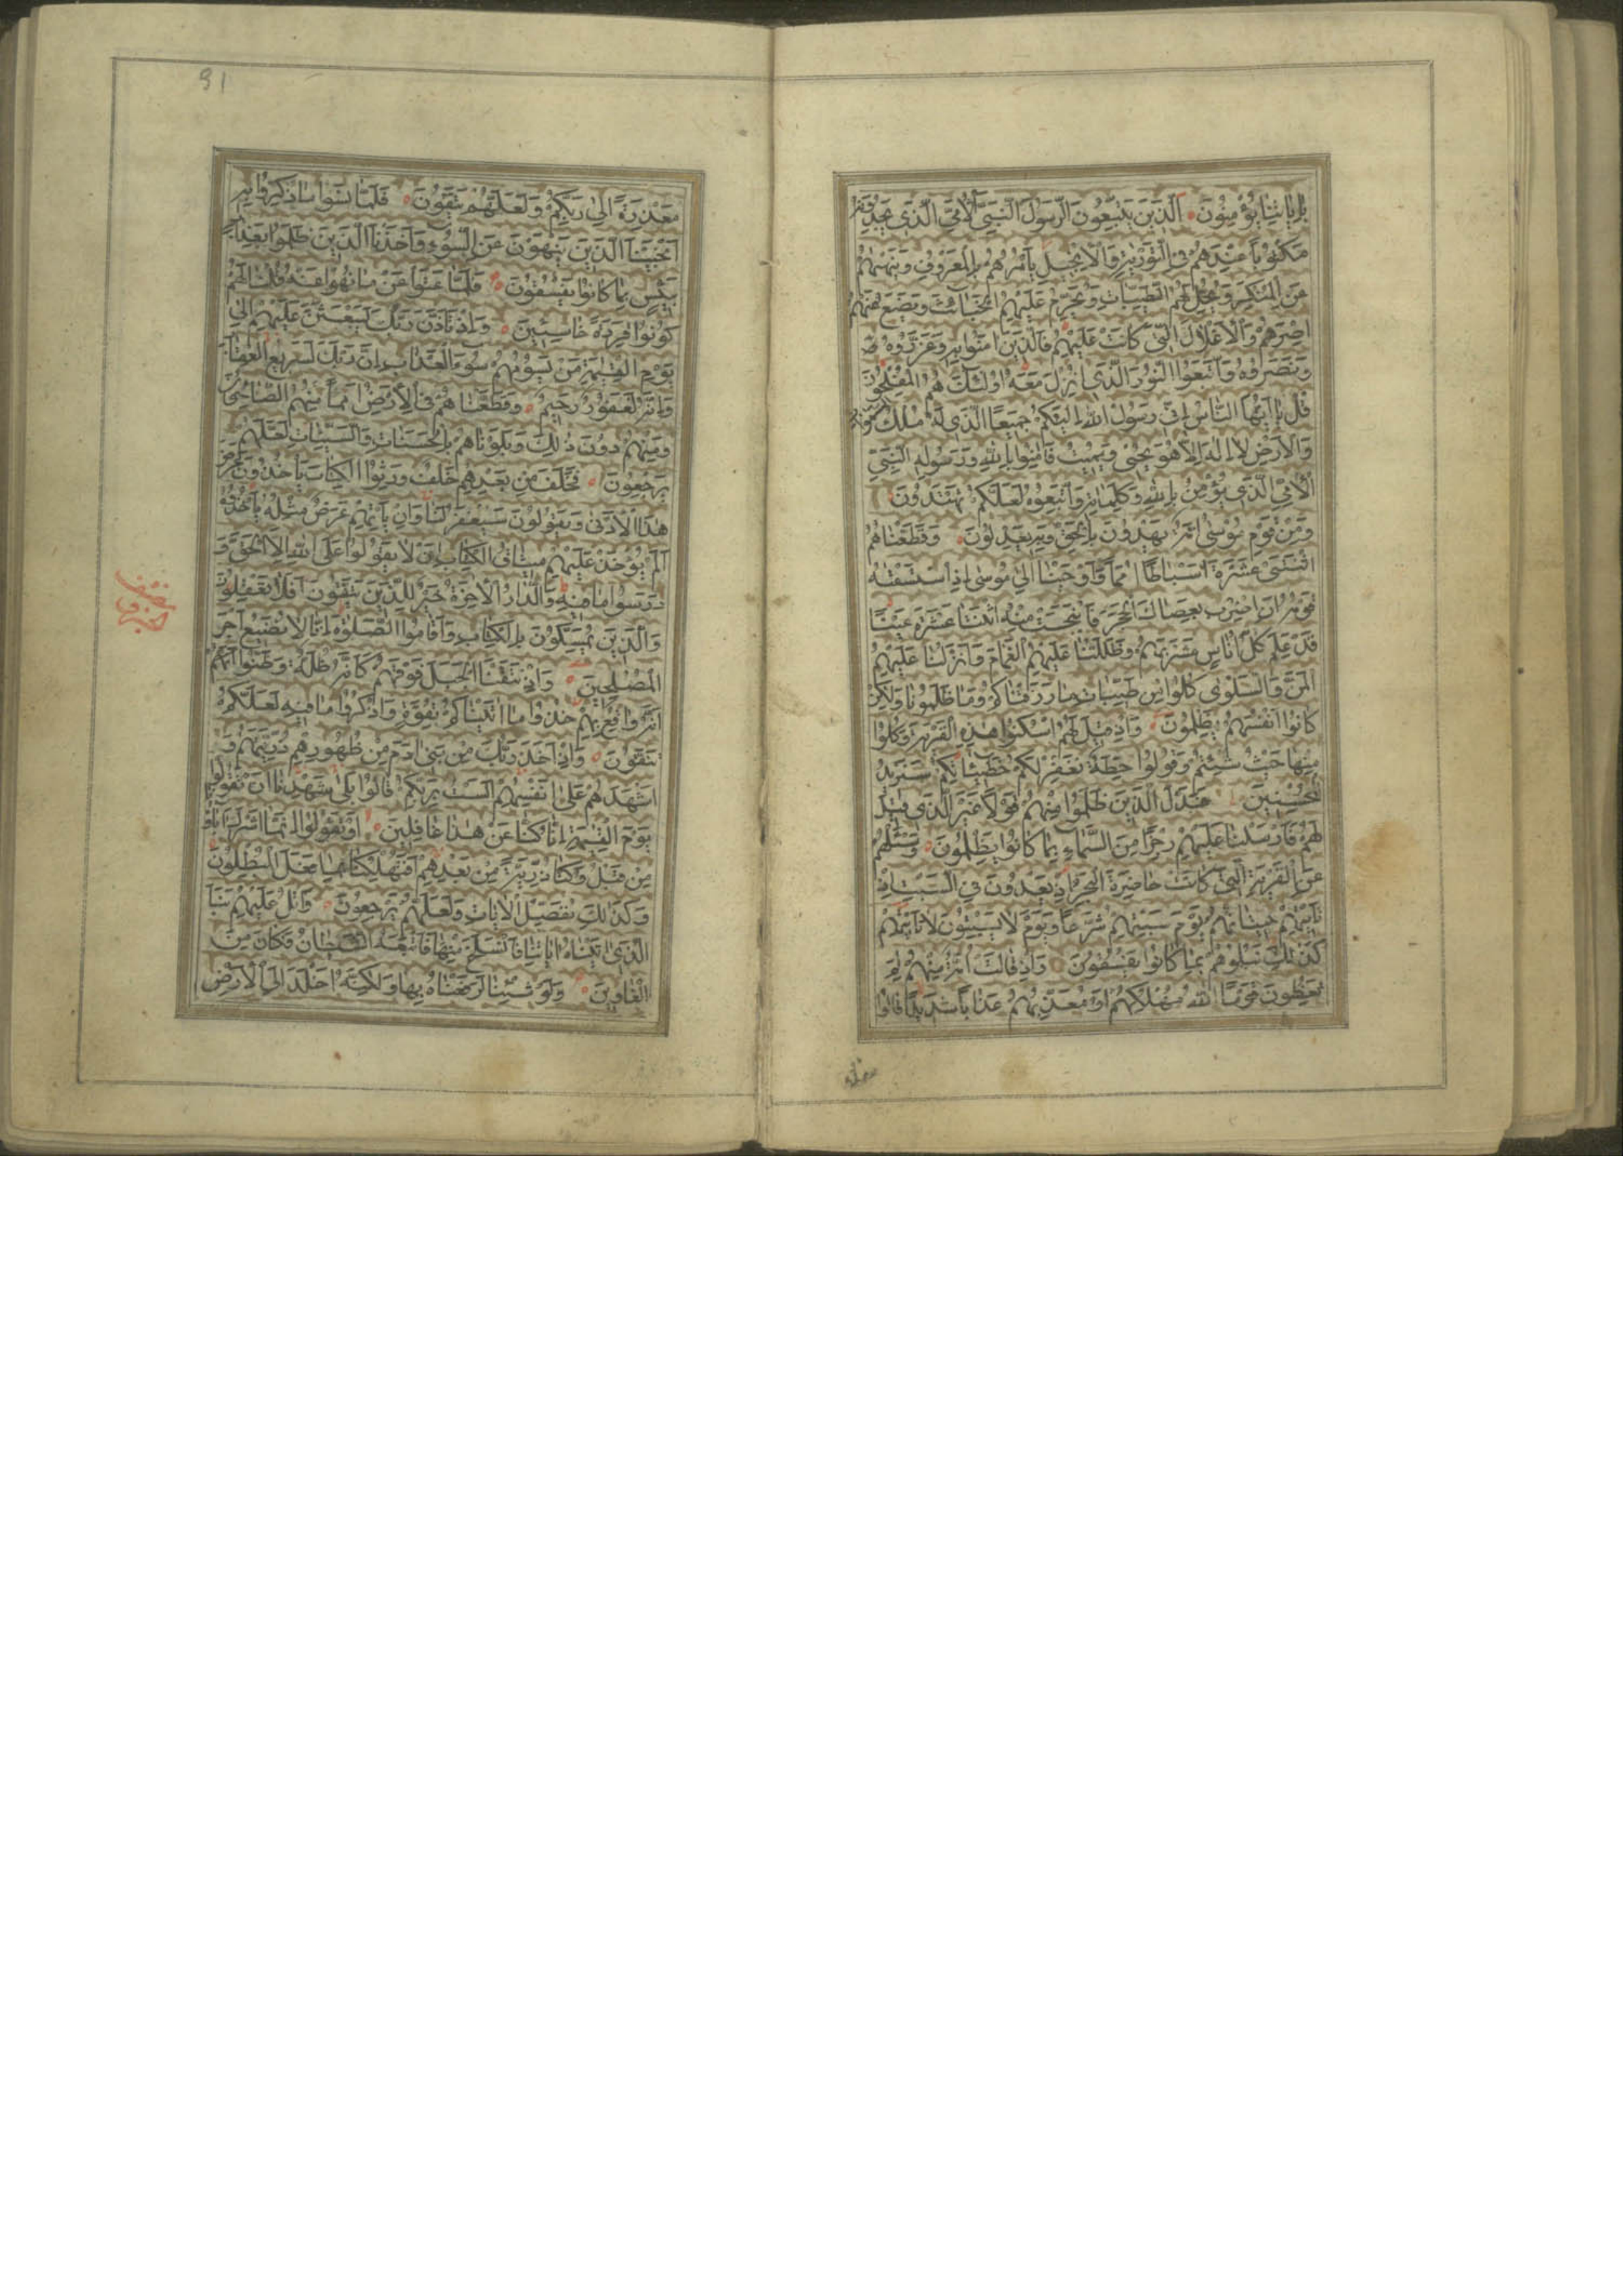 بِاٰيَاتِنَا يُؤْمِنُونَ اَلَّذِينَ يَتَّبِعُونَ الرَّسُولَ النَّبِيَّ الْاُمِّيَّ الَّذِي يَجِدُونَهُ
مَكْتُوبًا عِنْدَهُمْ فِي التَّوْرٰيةِ وَالْاِنْجِيلِ يَأْمُرُهُمْ بِالْمَعْرُوفِ وَيَنْهٰيهُمْ
عَنِ الْمُنْكَرِ وَيُحِلُّ لَهُمُ الطَّيِّبَاتِ وَيُحَرِّمُ عَلَيْهِمُ الْخَبَائِثَ وَيَضَعُ عَنْهُمْ
اِصْرَهُمْ وَالْاَغْلَالَ الَّتِي كَانَتْ عَلَيْهِمْ فَالَّذِينَ اٰمَنُوا بِهِ وَعَزَّرُوهُ
وَنَصَرُوهُ وَاتَّبَعُوا النُّورَ الَّذِي اُنْزِلَ مَعَهُ اُولٰئِكَ هُمُ الْمُفْلِحُونَ
قُلْ يَا اَيُّهَا النَّاسُ اِنِّي رَسُولُ اللهِ اِلَيْكُمْ جَمِيعًا الَّذِي لَهُ مُلْكُ السَّمٰوَاتِ
وَالْاَرْضِ لَا اِلٰهَ اِلَّا هُوَ يُحْيِي وَيُمِيتُ فَاٰمِنُوا بِاللهِ وَرَسُولِهِ النَّبِيِّ
الْاُمِّيِّ الَّذِي يُؤْمِنُ بِاللهِ وَكَلِمَاتِهِ وَاتَّبِعُوهُ لَعَلَّكُمْ تَهْتَدُونَ
وَمِنْ قَوْمِ مُوسٰى اُمَّةٌ يَهْدُونَ بِالْحَقِّ وَبِهِ يَعْدِلُونَ وَقَطَّعْنَاهُمُ
اثْنَتَيْ عَشْرَةَ اَسْبَاطًا اُمَمًا وَاَوْحَيْنَا اِلٰى مُوسٰى اِذِ اسْتَسْقٰيهُ
قَوْمُهُ اَنِ اضْرِبْ بِعَصَاكَ الْحَجَرَ فَانْبَجَسَتْ مِنْهُ اثْنَتَا عَشْرَةَ عَيْنًا
قَدْ عَلِمَ كُلُّ اُنَاسٍ مَشْرَبَهُمْ وَظَلَّلْنَا عَلَيْهِمُ الْغَمَامَ وَاَنْزَلْنَا عَلَيْهِمُ
الْمَنَّ وَالسَّلْوٰى كُلُوا مِنْ طَيِّبَاتِ مَا رَزَقْنَاكُمْ وَمَا ظَلَمُونَا وَلٰكِنْ
كَانُوا اَنْفُسَهُمْ يَظْلِمُونَ وَاِذْ قِيلَ لَهُمُ اسْكُنُوا هٰذِهِ الْقَرْيَةَ وَكُلُوا
مِنْهَا حَيْثُ شِئْتُمْ وَقُولُوا حِطَّةٌ نَغْفِرْ لَكُمْ خَطِيئَاتِكُمْ سَنَزِيدُ
الْمُحْسِنِينَ فَبَدَّلَ الَّذِينَ ظَلَمُوا مِنْهُمْ قَوْلًا غَيْرَ الَّذِي قِيلَ
لَهُمْ فَاَرْسَلْنَا عَلَيْهِمْ رِجْزًا مِنَ السَّمَاءِ بِمَا كَانُوا يَظْلِمُونَ وَسْئَلْهُمْ
عَنِ الْقَرْيَةِ الَّتِي كَانَتْ حَاضِرَةَ الْبَحْرِ اِذْ يَعْدُونَ فِي السَّبْتِ اِذْ
تَأْتِيهِمْ حِيتَانُهُمْ يَوْمَ سَبْتِهِمْ شُرَّعًا وَيَوْمَ لَا يَسْبِتُونَ لَا تَأْتِيهِمْ
كَذٰلِكَ نَبْلُوهُمْ بِمَا كَانُوا يَفْسُقُونَ وَاِذْ قَالَتْ اُمَّةٌ مِنْهُمْ لِمَ
تَعِظُونَ قَوْمًا اللهُ مُهْلِكُهُمْ اَوْ مُعَذِّبُهُمْ عَذَابًا شَدِيدًا قَالُوا
معذرة
91
مَعْذِرَةً اِلٰى رَبِّكُمْ وَلَعَلَّهُمْ يَتَّقُونَ فَلَمَّا نَسُوا مَا ذُكِّرُوا بِهِ
اَنْجَيْنَا الَّذِينَ يَنْهَوْنَ عَنِ السُّوءِ وَاَخَذْنَا الَّذِينَ ظَلَمُوا بِعَذَابٍ
بَئِيسٍ بِمَا كَانُوا يَفْسُقُونَ فَلَمَّا عَتَوْا عَنْ مَا نُهُوا عَنْهُ قُلْنَا لَهُمْ
كُونُوا قِرَدَةً خَاسِئِينَ وَاِذْ تَاَذَّنَ رَبُّكَ لَيَبْعَثَنَّ عَلَيْهِمْ اِلٰى
يَوْمِ الْقِيٰمَةِ مَنْ يَسُومُهُمْ سُوءَ الْعَذَابِ اِنَّ رَبَّكَ لَسَرِيعُ الْعِقَابِ
وَاِنَّهُ لَغَفُورٌ رَحِيمٌ وَقَطَّعْنَاهُمْ فِي الْاَرْضِ اُمَمًا مِنْهُمُ الصَّالِحُونَ
وَمِنْهُمْ دُونَ ذٰلِكَ وَبَلَوْنَاهُمْ بِالْحَسَنَاتِ وَالسَّيِّئَاتِ لَعَلَّهُمْ
يَرْجِعُونَ فَخَلَفَ مِنْ بَعْدِهِمْ خَلْفٌ وَرِثُوا الْكِتَابَ يَأْخُذُونَ عَرَضَ
هٰذَا الْاَدْنٰى وَيَقُولُونَ سَيُغْفَرُ لَنَا وَاِنْ يَأْتِهِمْ عَرَضٌ مِثْلُهُ يَأْخُذُوهُ
اَلَمْ يُؤْخَذْ عَلَيْهِمْ مِيثَاقُ الْكِتَابِ اَنْ لَا يَقُولُوا عَلَى اللهِ اِلَّا الْحَقَّ وَ
دَرَسُوا مَا فِيهِ وَالدَّارُ الْاٰخِرَةُ خَيْرٌ لِلَّذِينَ يَتَّقُونَ اَفَلَا تَعْقِلُونَ
وَالَّذِينَ يُمَسِّكُونَ بِالْكِتَابِ وَاَقَامُوا الصَّلٰوةَ اِنَّا لَا نُضِيعُ اَجْرَ
الْمُصْلِحِينَ وَاِذْ نَتَقْنَا الْجَبَلَ فَوْقَهُمْ كَاَنَّهُ ظُلَّةٌ وَظَنُّوا اَنَّهُ
وَاقِعٌ بِهِمْ خُذُوا مَا اٰتَيْنَاكُمْ بِقُوَّةٍ وَاذْكُرُوا مَا فِيهِ لَعَلَّكُمْ
تَتَّقُونَ وَاِذْ اَخَذَ رَبُّكَ مِنْ بَنِي اٰدَمَ مِنْ ظُهُورِهِمْ ذُرِّيَّتَهُمْ وَ
اَشْهَدَهُمْ عَلٰى اَنْفُسِهِمْ اَلَسْتُ بِرَبِّكُمْ قَالُوا بَلٰى شَهِدْنَا اَنْ تَقُولُوا
يَوْمَ الْقِيٰمَةِ اِنَّا كُنَّا عَنْ هٰذَا غَافِلِينَ اَوْ تَقُولُوا اِنَّمَا اَشْرَكَ اٰبَاؤُنَا
مِنْ قَبْلُ وَكُنَّا ذُرِّيَّةً مِنْ بَعْدِهِمْ اَفَتُهْلِكُنَا بِمَا فَعَلَ الْمُبْطِلُونَ
وَكَذٰلِكَ نُفَصِّلُ الْاٰيَاتِ وَلَعَلَّهُمْ يَرْجِعُونَ وَاتْلُ عَلَيْهِمْ نَبَاَ
الَّذِي اٰتَيْنَاهُ اٰيَاتِنَا فَانْسَلَخَ مِنْهَا فَاَتْبَعَهُ الشَّيْطَانُ فَكَانَ مِنَ
الْغَاوِينَ وَلَوْ شِئْنَا لَرَفَعْنَاهُ بِهَا وَلٰكِنَّهُ اَخْلَدَ اِلَى الْاَرْضِ